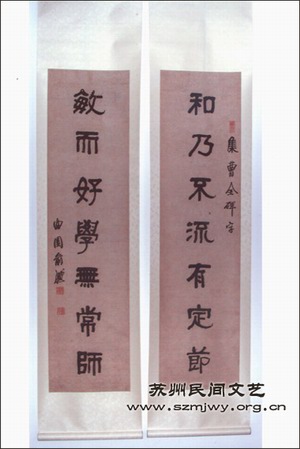 集曹全碑字
和乃不流有定節
敏而好學無常師
曲園俞樾
苏州民间文艺
www.szmjwy.org.cn